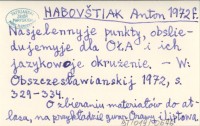 HABOVŠTIAK Anton 1972 r.
Nasjelennyje punkty, obslie-
dujemyje dla OŁA i ich
jazykowoje okrużenie. – W:
Obszczesławianskij 1972, s.
329-334.
O zbieraniu materiałów do at-
lasu, na przykładzie gwar Orawy i Liptowa